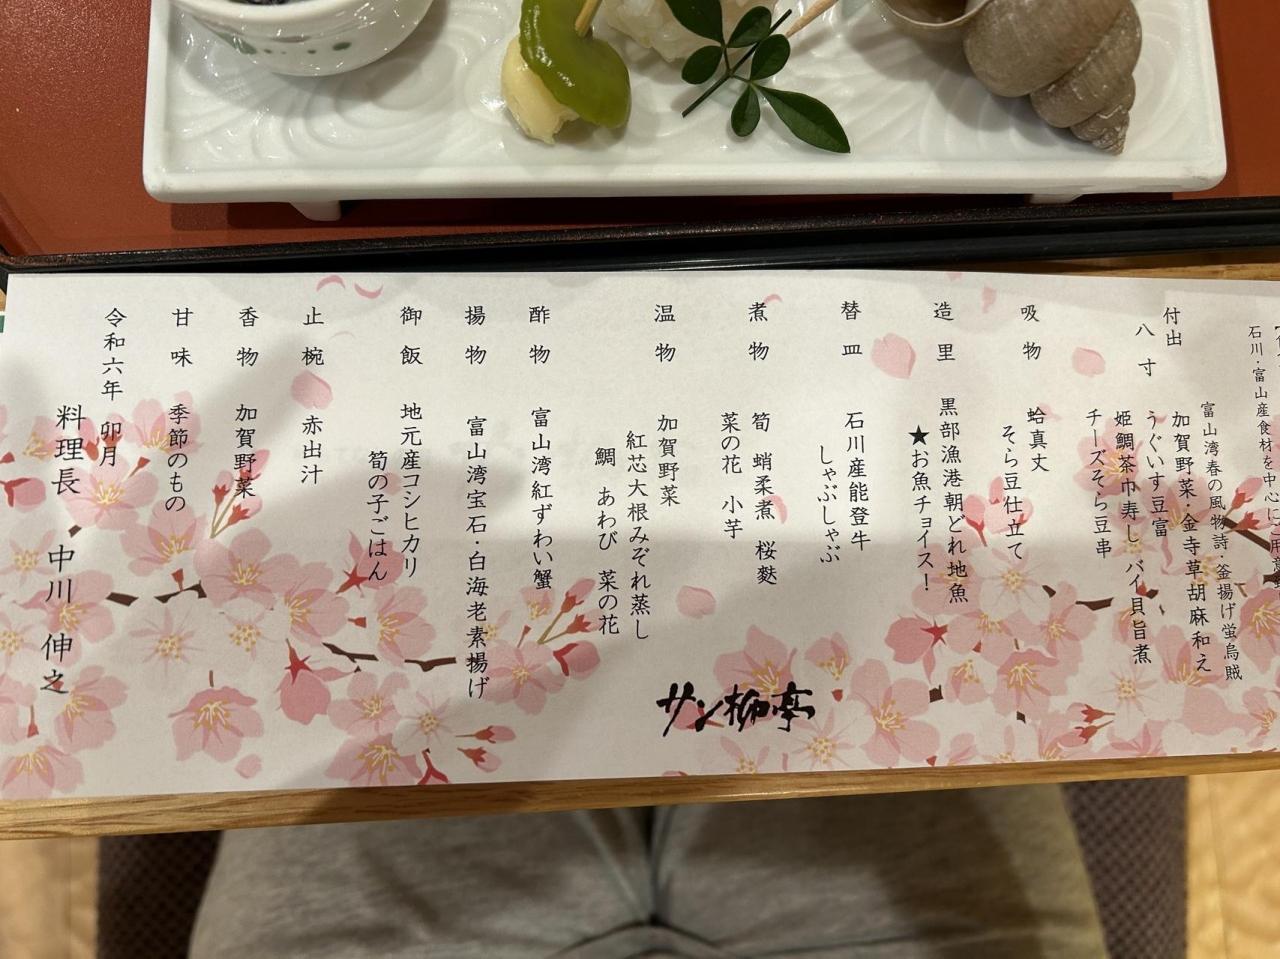 石川・富山産食材を中心にご用意
付出
富山湾春の風物詩・釜揚げ蛍烏賊
八寸
加賀野菜・金寺草胡麻和え
うぐいす豆富
姫鯛茶巾寿し バイ貝旨煮
チーズそら豆串
吸物
蛤真丈
そら豆仕立て
造里
黒部漁港朝どれ地魚
★お魚チョイス!
替皿
石川産能登牛
しゃぶしゃぶ
煮物
筍 蛸柔煮 桜麩
菜の花 小芋
温物
加賀野菜
紅芯大根みぞれ蒸し
鯛 あわび 菜の花
酢物
富山湾紅ずわい蟹
揚物
富山湾宝石・白海老素揚げ
御飯
地元産コシヒカリ
筍の子ごはん
止椀
赤出汁
香物
加賀野菜
甘味
季節のもの
令和六年 卯月
料理長 中川 伸之
サン柳亭